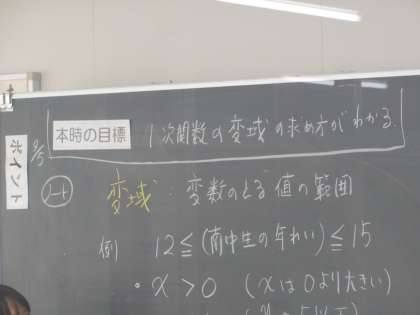 本時の目標 1次関数の変域の求め方がわかる.
ポイント
9/5
ノート
変域：変数のとる値の範囲
例 12≦(南中生の年れい)≦15
・x>0 (xは0より大きい)